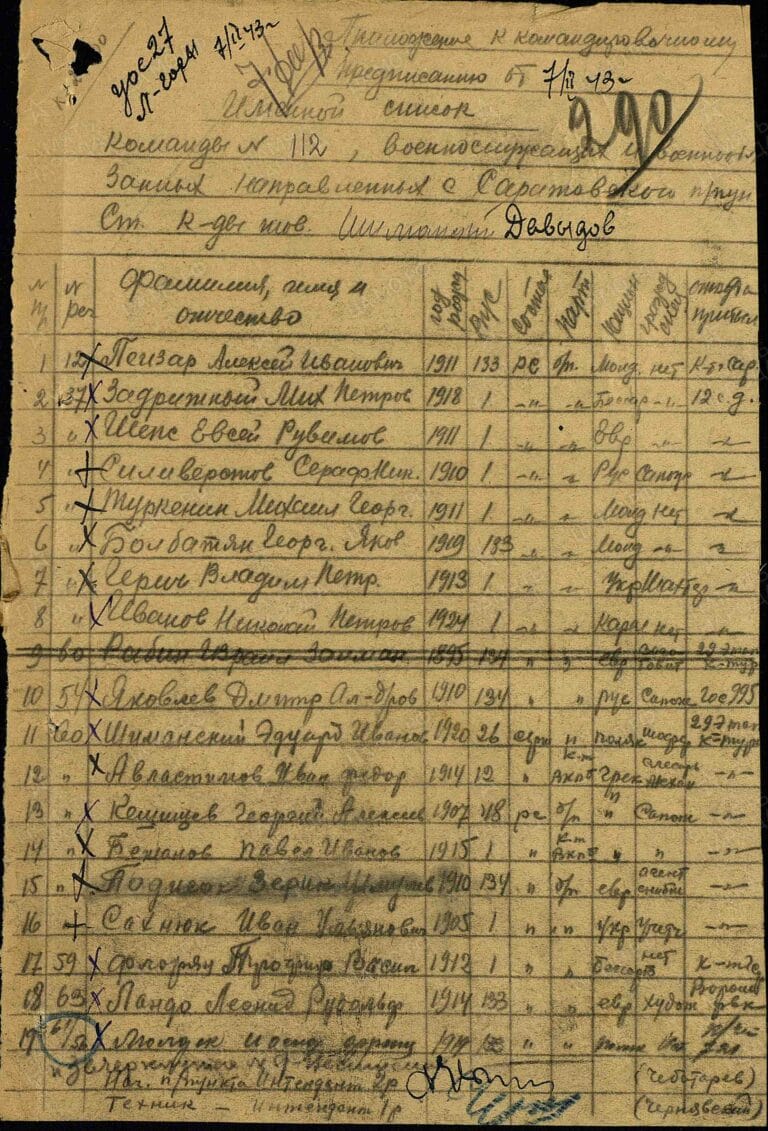 Приложение к командировочному
уос 27 7/II 43г
Л-Горы
предписанию от 7/II 43г
Именной список
290
Команды № 112, военнослужащих и военнообя
занных направленных с Саратовского прпун
Ст. к-ды тов. Шиманский Давыдов
№ пр № реч фамилия, имя и отчество год рожд Вус Состав Парт Национ гражд спец откуда прибыл
1 12 Пензар Алексей Иванович 1911 133 рс бп. Молд. нет К-т Сар.
2 37 Задрижный Мих Петров 1918 1 -"- -"- Бессар -"- 12 с.д.
3 " Шепс Евсей Рувимов 1911 1. Евр -"-
4 " Силиверстов Сераф Ник. 1910 1. -"- Рус Сапож -"-
5 " Туркенин Михаил Георг. 1911 1. -"- Молд нет -"-
6 " Болбатян Георг. Яков 1909 133 " Молд -"- "
7 " Герич Владим Петр. 1913 1 " Укр Шахтер -"-
8 " Иванов Николай Петров 1924 1 -"- нет -"-
9 60 Рабин Израил Залман 1895 134 " евр 29 Этап
10 54 Яковлев Дмитр Ал-дров 1910 134 " " рус Сапож Гос 995
11 60 Шиманский Эдуард Иванов 1920 26 серж п поляк шофер 29 Этап
12 " Авластимов Иван федор 1914 12 " к-т Вкпб Грек слесарь -"-
13 " Кешишев Георгий Алексеев 1907 48 рс б/п " Сапож -"-
14 " Бежанов Павел Иванов 1915 1 " к-т Вкпб " " -"-
15 " Подисок 1910 134 " б/п евр агент снабж -"-
16 " Сахнюк Иван Ульянович 1905 1 " " Укр Учит -"-
17 59 Флоря Трофим Васил 1912 1 " " Бессар нет
18 63 Ландо Леонид Рудольф 1914 133 " " евр Худож рвк
19 61/52 1914 " "
Нач. прпункта Интендант 2р (Чеботарев)
Техник – Интендант 1р (Чернявский)